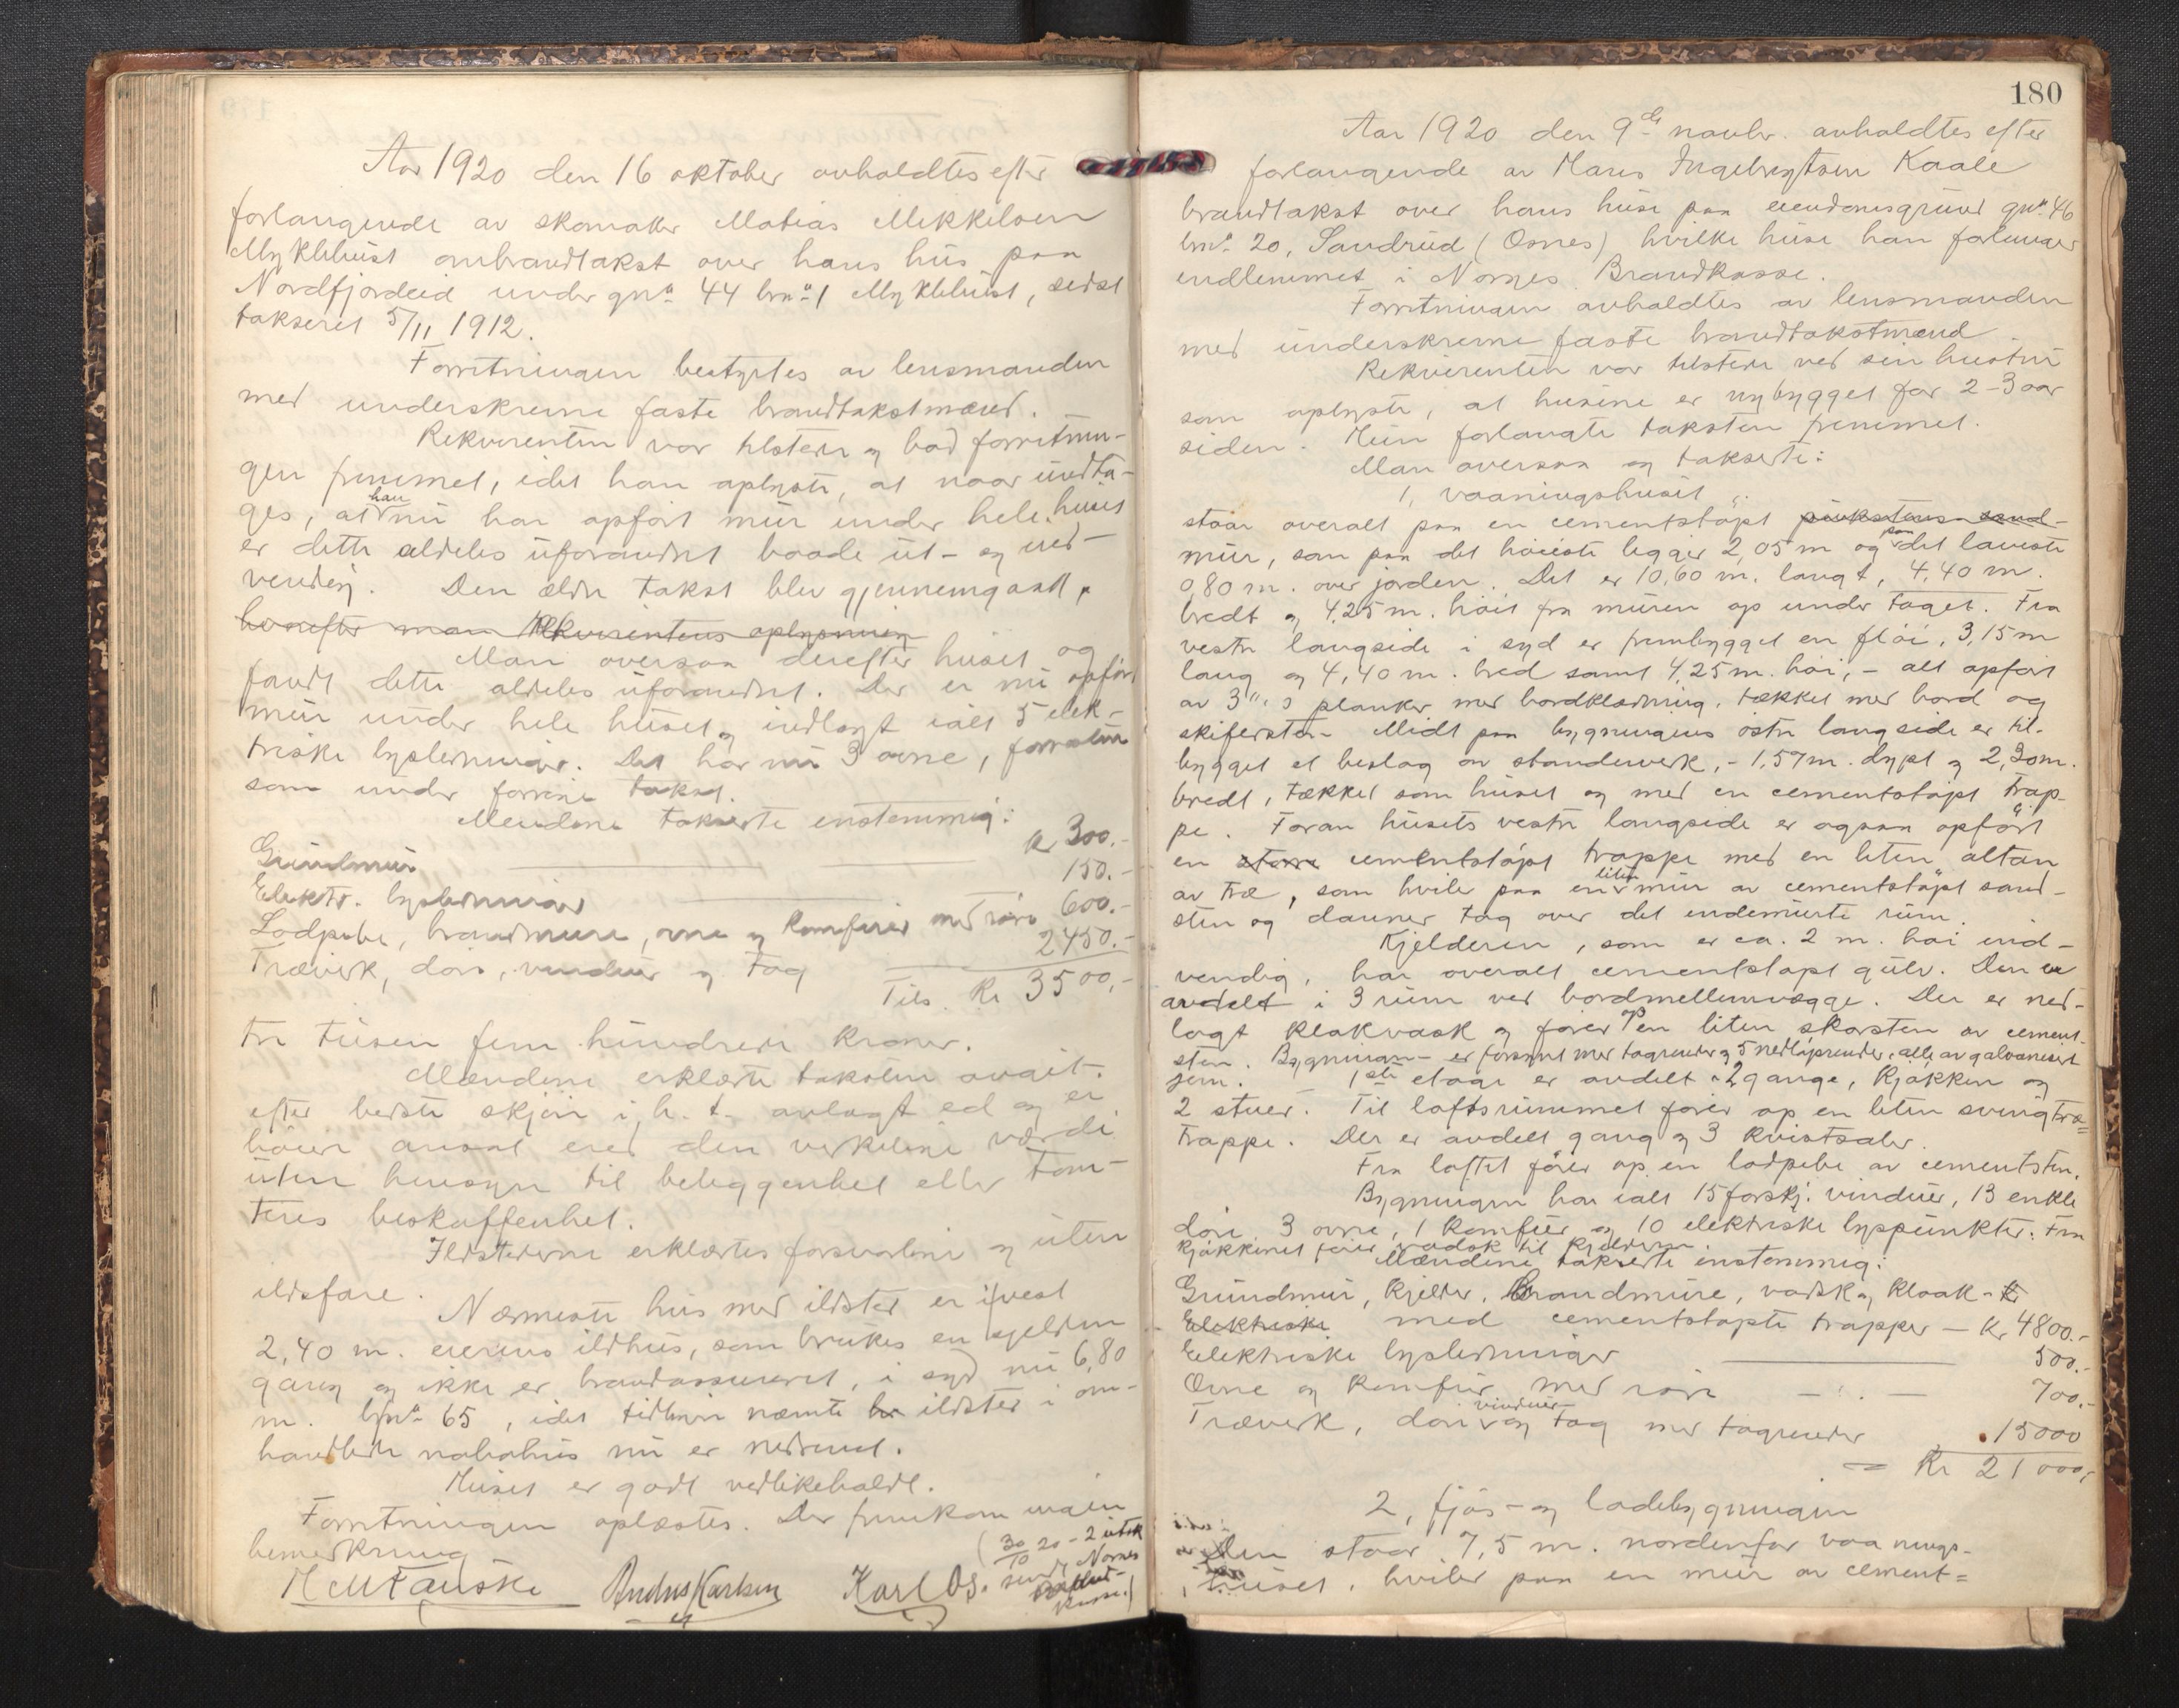 Aar 1920 den 16 oktober avholdtes efter
forlangende av skomaker Matias Mikkelsen
Myklebust ombrandtakst over hans hus paa
Nordfjordeid under gn.º 44 brn.º 1 Myklebust, sidst
takseret 5/11 1912.
Forretningen bestyrtes av lensmanden
med underskrevne faste brandtakstmænd.
Rekvirenten var tilstede og bad forretnin-
gen fremmet, idet han oplyste, at naar undta-
ges, at han nu har opført mur under hele huset
er dette aldeles uforandret baade ut- og ind-
vendig. Den ældre takst blev gjennemgaaet,
hvorefter man Rekvirentens oplysning
Man oversaa derefter huset og
fandt dette aldeles uforandret. Der er nu opført
mur under hele huset og indlagt ialt 5 elek-
triske lysledninger. Det har nu 3 ovne, forøvrig
som under forrige takst.
Mændene takserte enstemmig:
Grundmur Kr 300.-
Elektr. lysledninger 150.-
Lodpibe, brandmure, ovne og komfurer med rør 600.-
Træverk, døre, vinduer og tag 2450.-
Tils. Kr 3500,-
tre tusen fem hundrede kroner.
Mændene erklærte taksten avgit
efter bedste skjøn i h. t. avlagt ed og ei
høiere ansat end den virkelige værdi
uten hensyn til beliggenhet eller tom-
tens beskaffenhet.
Ildstederne erklærtes forsvarlige og uten
ildsfare.
Nærmeste hus med ildsted er i vest
2,40 m. eierens ildhus, som brukes en sjelden
gang og ikke er brandassureret, i syd nu 6,80
m. bn.º 65, idet tidligere nævnte ildsted i om-
handlede nabohus nu er nedrevet.
Huset er godt vedlikeholdt.
Forretningen oplæstes. Der fremkom ingen
bemerkning
(30/10 20 - 2 utsk
send. Norges
Brand-
kasse.)
H M Fauske Andus Karlsen Karl Os.
180
Aar 1920 den 9de novbr. avholdtes efter
forlangende av Hans Ingebrigtsen Kaale
brandtakst over hans huse paa eiendomsgrund gn.º 46
brn.º 20, Sandrud (Osnes) hvilke huse han forlanger
indlemmet i Norges Brandkasse.
Forretningen avholdtes av lensmanden
med underskrevne faste brandtakstmænd
Rekvirenten var tilstede ved sin hustru
som oplyste, at husene er nybygget for 2-3 aar
siden. Hun forlangte taksten fremmet.
Man oversaa og takserte:
1, vaaningshuset
staar overalt paa en cementstøpt pukstens sand-
mur, som paa det høieste ligger 2,05 m og paa det laveste
0,80 m. over jorden. Det er 10,60 m. langt, 4,40 m.
bredt og 4,25 m. høit fra muren op under taget. Fra
vestre langside i syd er frembygget en fløi, 3,15 m
lang og 4,40 m. bred samt 4,25 m. høi, - alt opført
av 3" planker med bordklædning, tækket med bord og
skifersten. Midt paa bygningens østre langside er til-
bygget et beslag av stenderverk, - 1,57 m. dypt og 2,30 m.
bredt, tækket som huset og med en cementstøpt trap-
pe. Foran husets vestre langside er ogsaa opført
en større cementstøpt trappe med en liten altan
av træ, som hviler paa en liten mur av cementstøpt sand-
sten og danner tag over det indemurte rum.
Kjelderen, som er ca. 2 m. høi ind-
vendig, har overalt cementstøpt gulv. Den er
avdelt i 3 rum ved bordmellemvægge. Der er ned-
lagt kloakvask og fører op en liten skorsten av cement-
sten. Bygningen er forsynt med tagrender og 5 nedløpsrender, alle av galvanisert
jern. 1ste etage er avdelt i 2 gange, kjøkken og
2 stuer. Til loftsrummet fører op en liten svingtræ-
trappe. Der er avdelt gang og 3 kvistsaler.
Fra loftet fører op en lodpibe av cementsten.
Bygningen har ialt 15 forskj. vinduer, 13 enkle
døre, 3 ovne, 1 komfur og 10 elektriske lyspunkter. Fra
kjøkkenet fører vadsk til kjelderen.
Mændene takserte enstemmig:
Grundmur, kjelder, Brandmure, vadsk og kloak -
Elektriske med cementstøpte trapper - Kr 4800.-
Elektriske lysledninger 500.-
Ovne og komfur med rør 700.-
Træverk, døre, vinduer og tag med tagrender 15000
= Kr 21000,-
2, fjøs- og ladebygningen
Den staar 7,5 m. nordenfor vaanings-
huset, hviler paa en mur av cement=